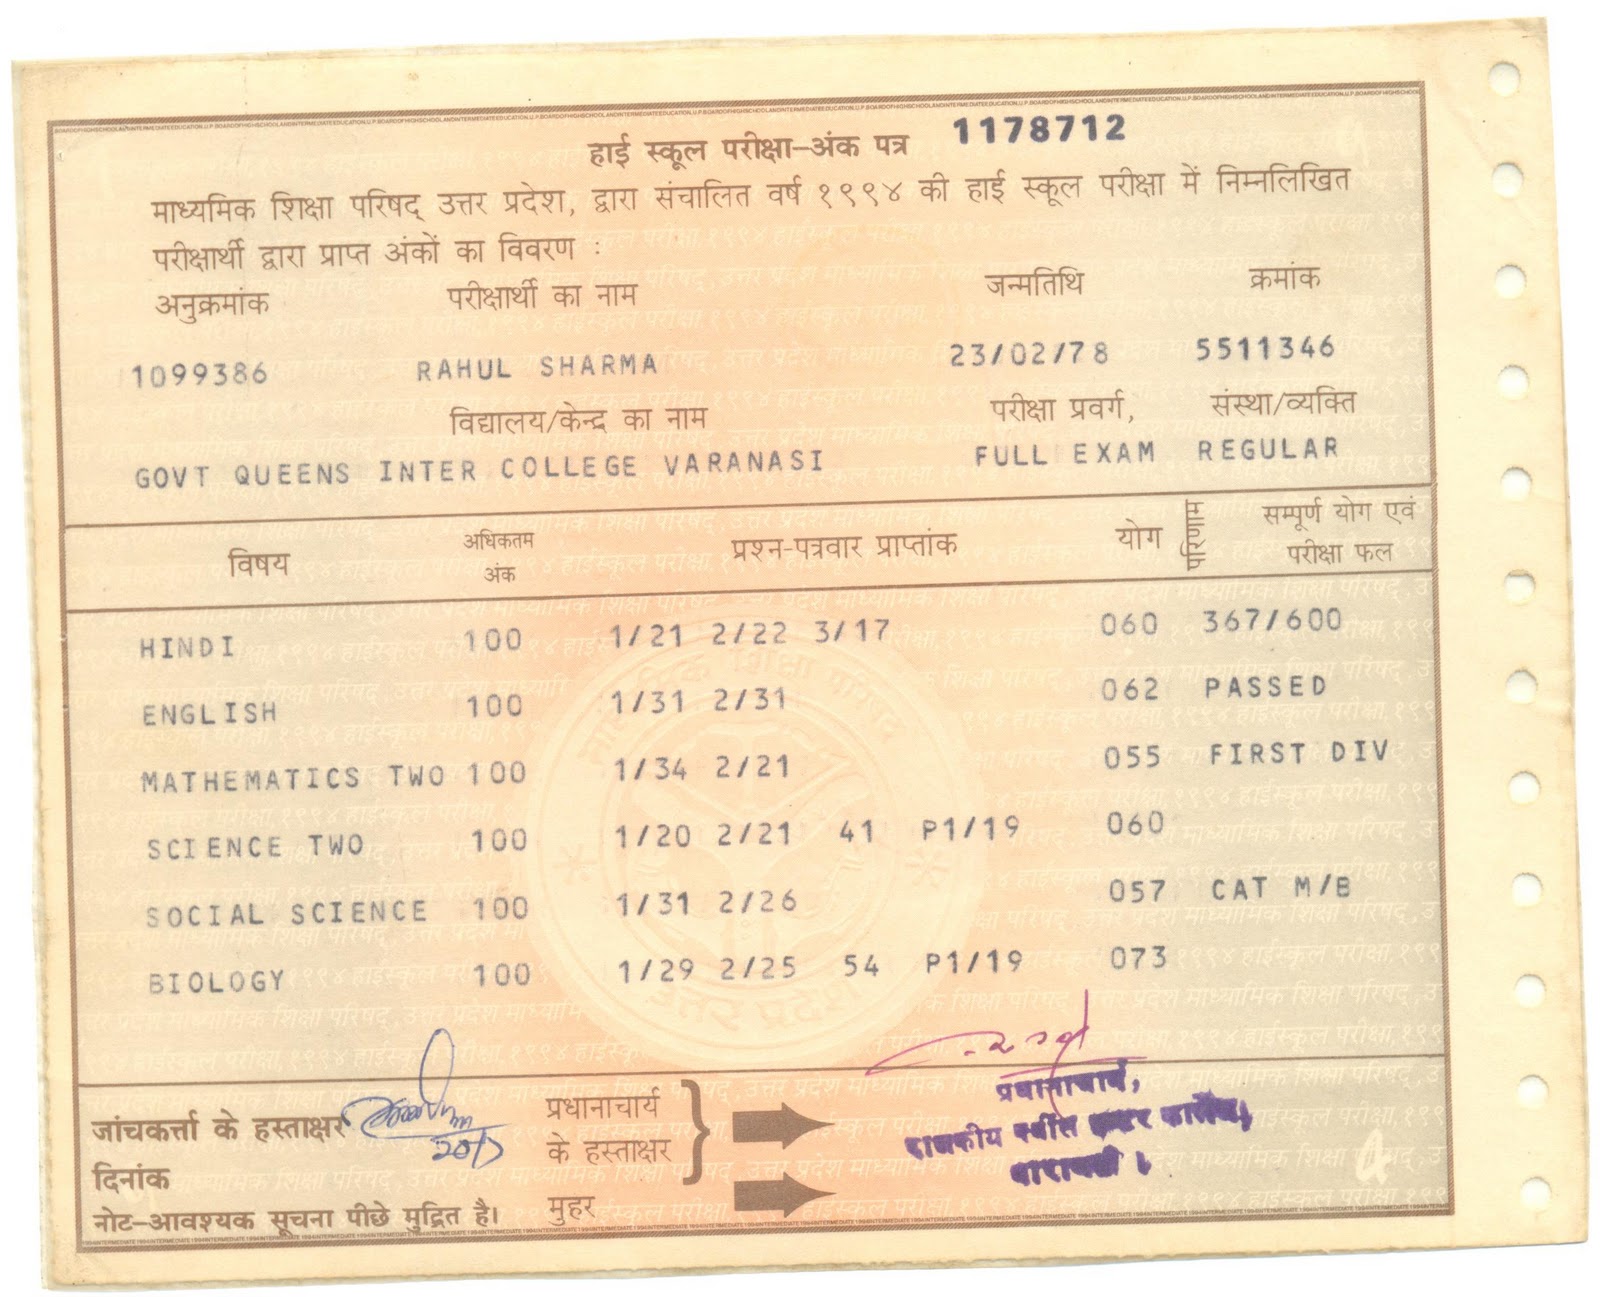 हाई स्कूल परीक्षा–अंक पत्र 1178712
माध्यमिक शिक्षा परिषद् उत्तर प्रदेश, द्वारा संचालित वर्ष १९९४ की हाई स्कूल परीक्षा में निम्नलिखित
परीक्षार्थी द्वारा प्राप्त अंकों का विवरण :
अनुक्रमांक परीक्षार्थी का नाम जन्मतिथि क्रमांक
1099386 RAHUL SHARMA 23/02/78 5511346
विद्यालय/केन्द्र का नाम परीक्षा प्रवर्ग, संस्था/व्यक्ति
GOVT QUEENS INTER COLLEGE VARANASI FULL EXAM REGULAR
विषय अधिकतम अंक प्रश्न-पत्रवार प्राप्तांक योग परिणाम सम्पूर्ण योग एवं परीक्षा फल
HINDI 100 1/21 2/22 3/17 060 367/600
ENGLISH 100 1/31 2/31 062 PASSED
MATHEMATICS TWO 100 1/34 2/21 055 FIRST DIV
SCIENCE TWO 100 1/20 2/21 41 P1/19 060
SOCIAL SCIENCE 100 1/31 2/26 057 CAT M/B
BIOLOGY 100 1/29 2/25 54 P1/19 073
जांचकर्त्ता के हस्ताक्षर प्रधानाचार्य के हस्ताक्षर
प्रधानाचार्य,
राजकीय क्वींस इण्टर कालेज,
वाराणसी।
दिनांक
मुहर
नोट–आवश्यक सूचना पीछे मुद्रित है।